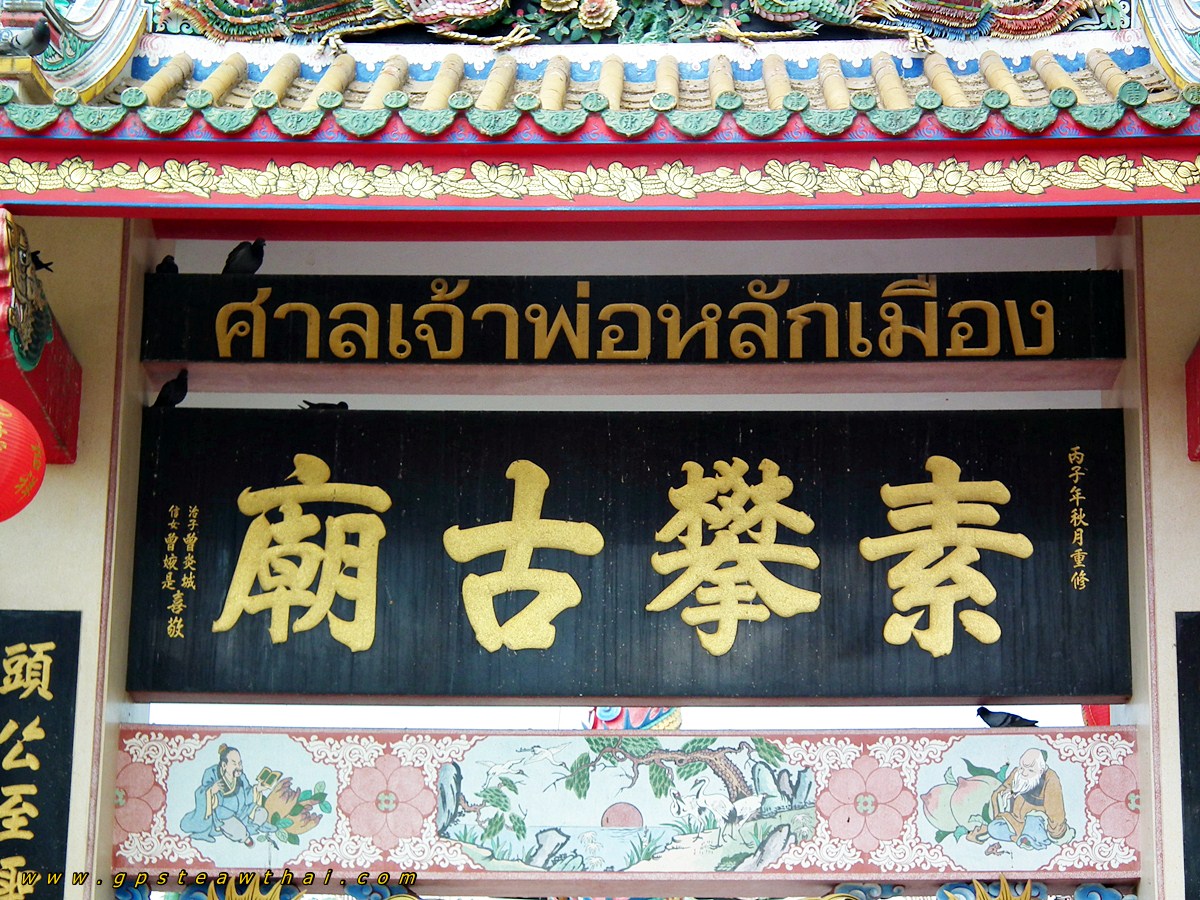 ศาลเจ้าพ่อหลักเมือง
丙子年秋月重修
素攀古廟
治子曾炎城
信女曾㛿是喜敬
頭公至
www.gpsteawthai.com